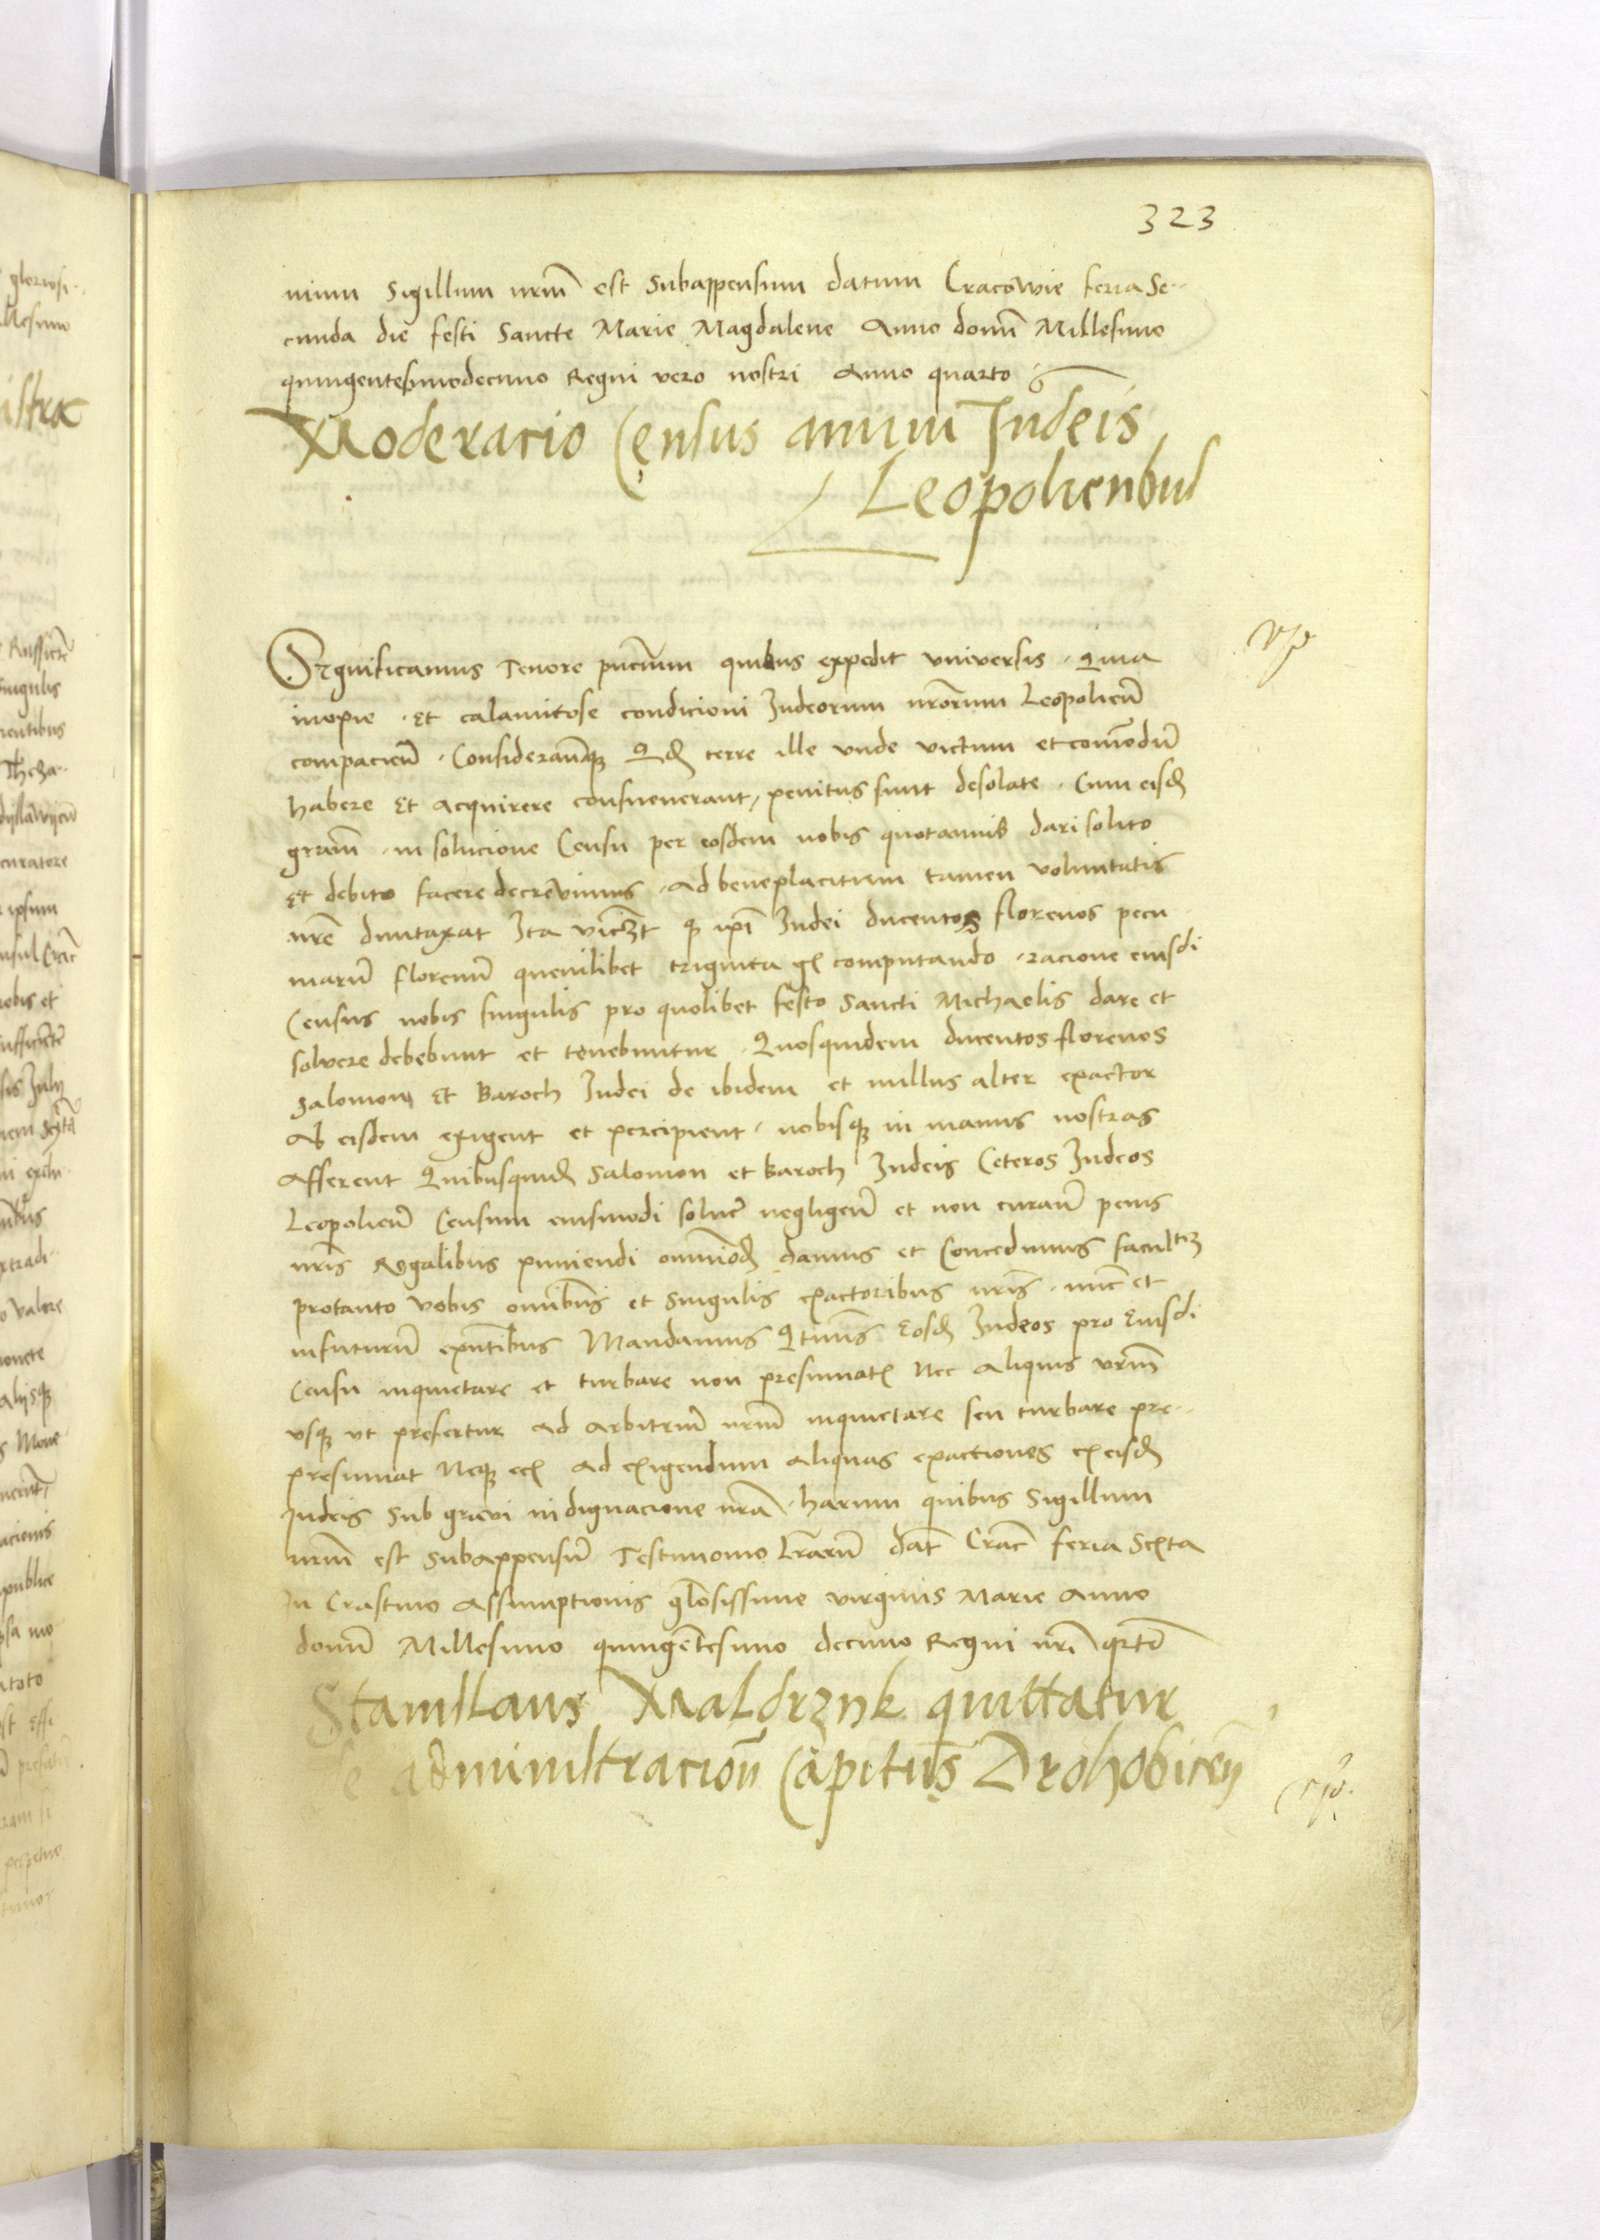 323
nium Sigillum nrm̄ est Subappensum datum Cracowie feria Se-
cunda die festi Sancte Marie Magdalene Anno domī Millesimo
quingentesimodecimo Regni vero nostri Anno quarto
Moderacio Census annui Judeis
Leopoliensibus
Significamus Tenore pn̄cium quibus expedit vniuersis . Quia
inopie . Et calamitose condicioni Judeorum nrōrum Leopolien̄
compacien̄ . Considerantesque Qd terre ille vnde victum et comodū
habere Et acquirere consueuerant, penitus sunt desolate . Cum eisd
graām . in solucione Censu per eosdem nobis quotannis dari solito
Et debito facere decreuimus . Ad beneplacitum tamen voluntatis
nrē duntaxat Ita vicȝt q ipī Judei ducentos florenos pecu
niarū florenū quemlibet triginta gr computando . racione eiusdi
Census nobis singulis pro quolibet festo Sancti Michaelis dare et
soluere debebunt et tenebuntur . Quosquidem ducentos florenos
Salomon Et Baroch Judei de ibidem et nullus alter exactor
Ab eisdem exigent et percipient . nobisq in manus nostras
Afferent Quibusquid Salomon et Baroch Judeis Ceteros Judeos
Leopolien̄ Censum eiusmodi soluer̄ negligen̄ et non curan̄ penis
nrīs Regalibus puniendi omnīod damus et Concedimus facultȝ
protanto vobis omībus et Singulis exactoribus nrīs . nunc et
infuturū exn̄tibus Mandamus Qtinus Eosd Judeos pro Eiusdi
Censu inquietare et turbare non presumatis Nec Aliquis vrm̄
vsq vt prefertur Ad Arbitriū nrm̄ inquietare seu turbare pre-
presumat Neq eciam Ad exigendum Aliquas exactiones ex eisd
Judeis Sub graui indignacione nrā . harum quibus Sigillum
nrm̄ est Subappensū Testimonio Lrārū dat̄ Crac̄ feria Sexta
In Crastino Assumptionis glōsissime virginis Marie Anno
domī Millesimo quingētesimo decimo Regni nrī qrto
Stanislaus Maldrzyk quittatur
de administracion̄ Capitus Drohobicen̄